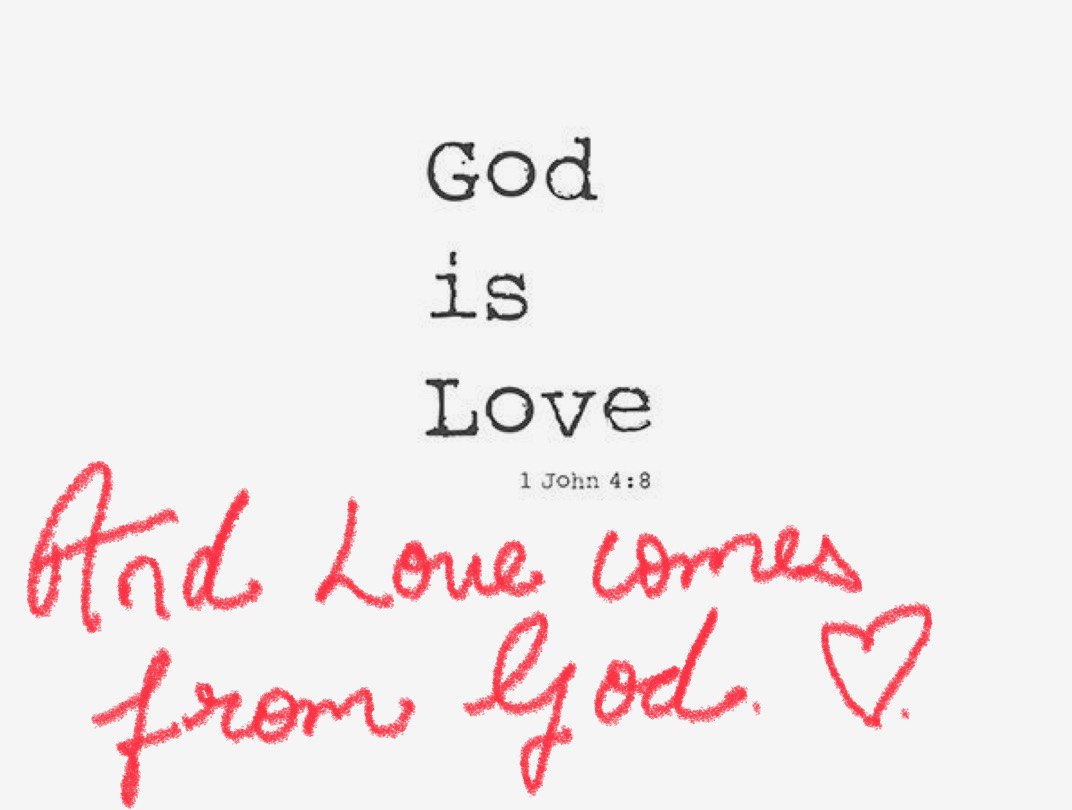 God
is
Love
1 John 4:8
And Love comes
from God. ♡.